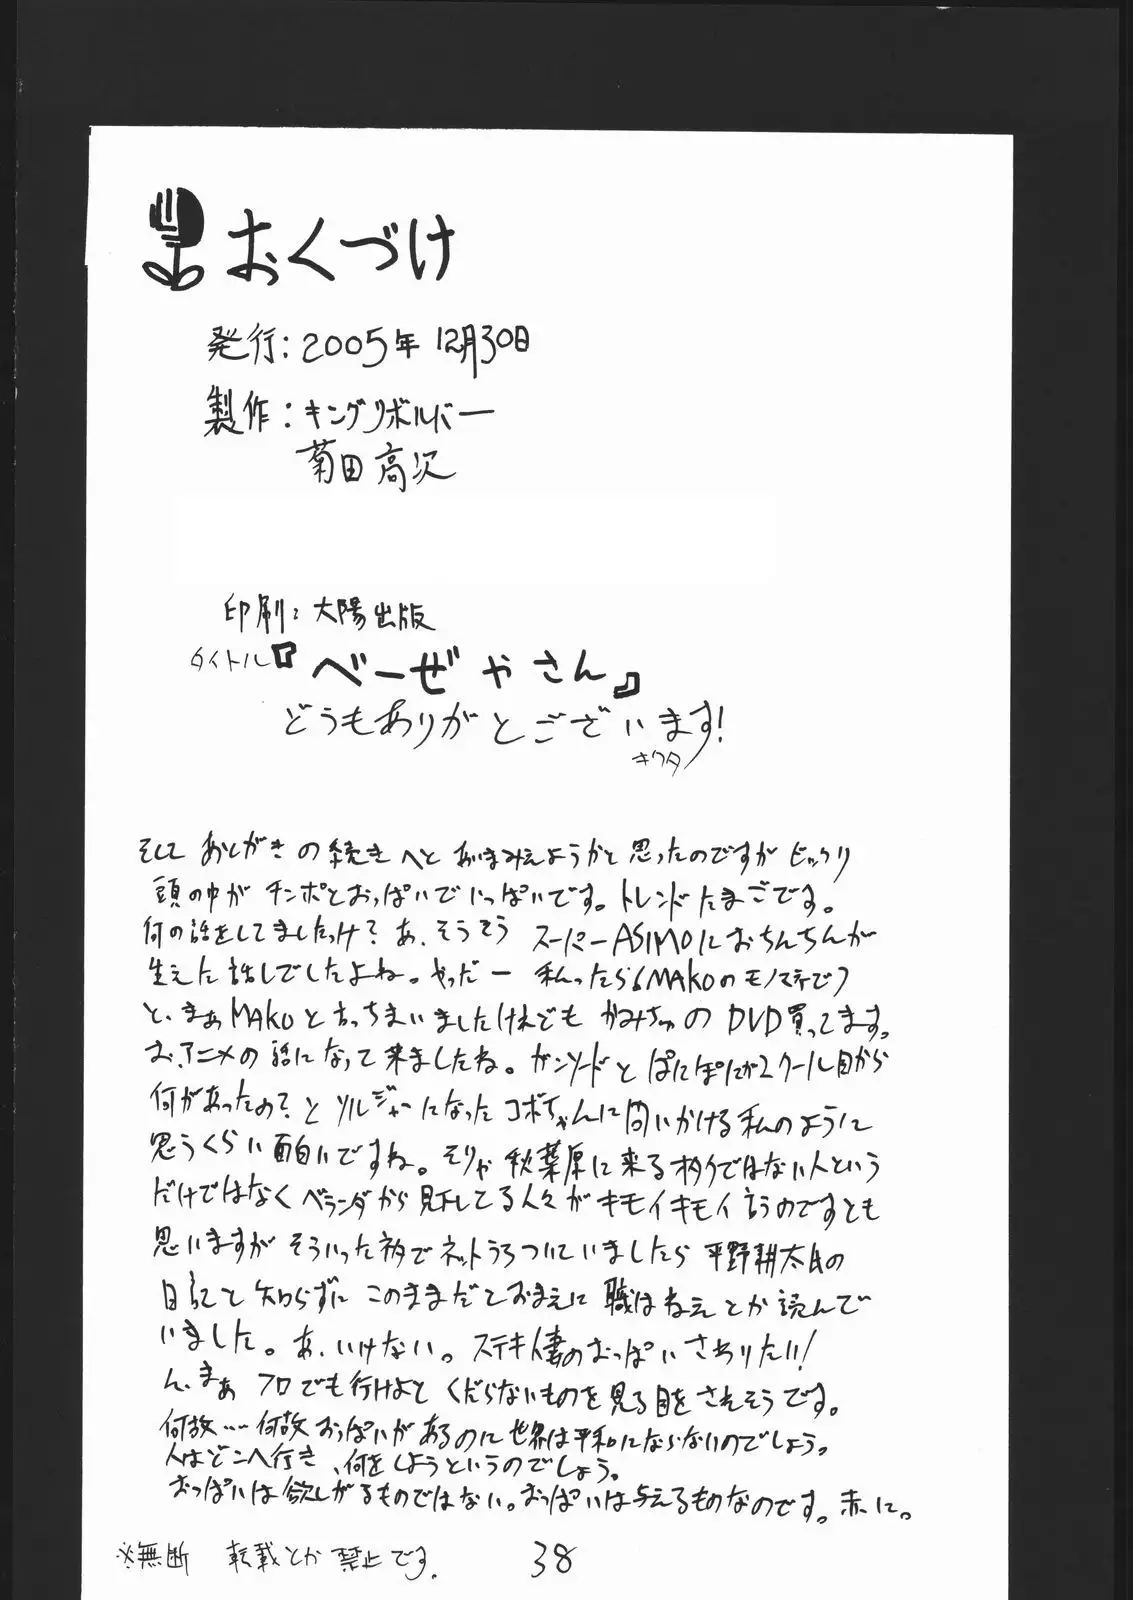 おくづけ
発行:2005年12月30日
製作:キングリボルバー
菊田高次
印刷:大陽出版
タイトル『べーぜやさん』
どうもありがとございます!
キクタ
そして あとがきの続きへと あいまみえようかと思ったのですが ビックリ
頭の中が チンポとおっぱいでいっぱいです。トレンドたまごです。
何の話をしてましたっけ? あ、そうそう スーパーASIMOにおちんちんが
生えた話しでしたよね。やっだー 私ったら MAKOのモノマネでつ
と、まぁMAKOと言っちまいましたけれども かみちゅのDVD買ってます。
お、アニメの話になって来ましたね。ガンソードと ぱにぽにが2クール目から
何があったの? と ソルジャーになった コボちゃんに問いかける私のように
思うくらい面白いですね。そりゃ 秋葉原に来るオタクではない人という
だけではなく ベランダから見下してる人々が キモイキモイ言うのですとも
思いますが そういった初めてネットうろついていましたら 平野耕太氏の
日記と知らずに このままだとおまえに 職はねえとか読んで
いました。あ、いけない。ステキ人妻のおっぱい さわりたい!
ん、まぁ プロでも行けよと くだらないものを見る目をされそうです。
何故…何故おっぱいがあるのに世界は平和にならないのでしょう。
人はどこへ行き、何をしようというのでしょう。
おっぱいは欲しがるものではない。おっぱいは与えるものなのです。赤に。
※無断 転載とか禁止です.
38